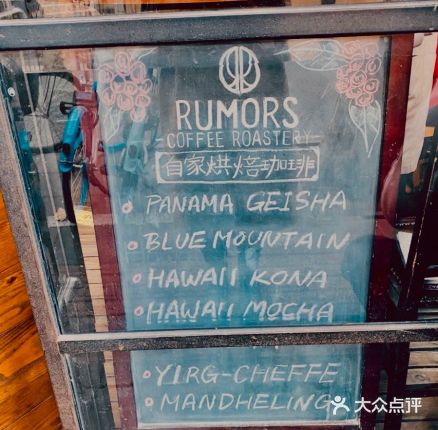 RUMORS
COFFEE ROASTERY
自家烘焙咖啡
PANAMA GEISHA
BLUE MOUNTAIN
HAWAII KONA
HAWAII MOCHA
YIRG-CHEFFE
MANDHELING
大众点评